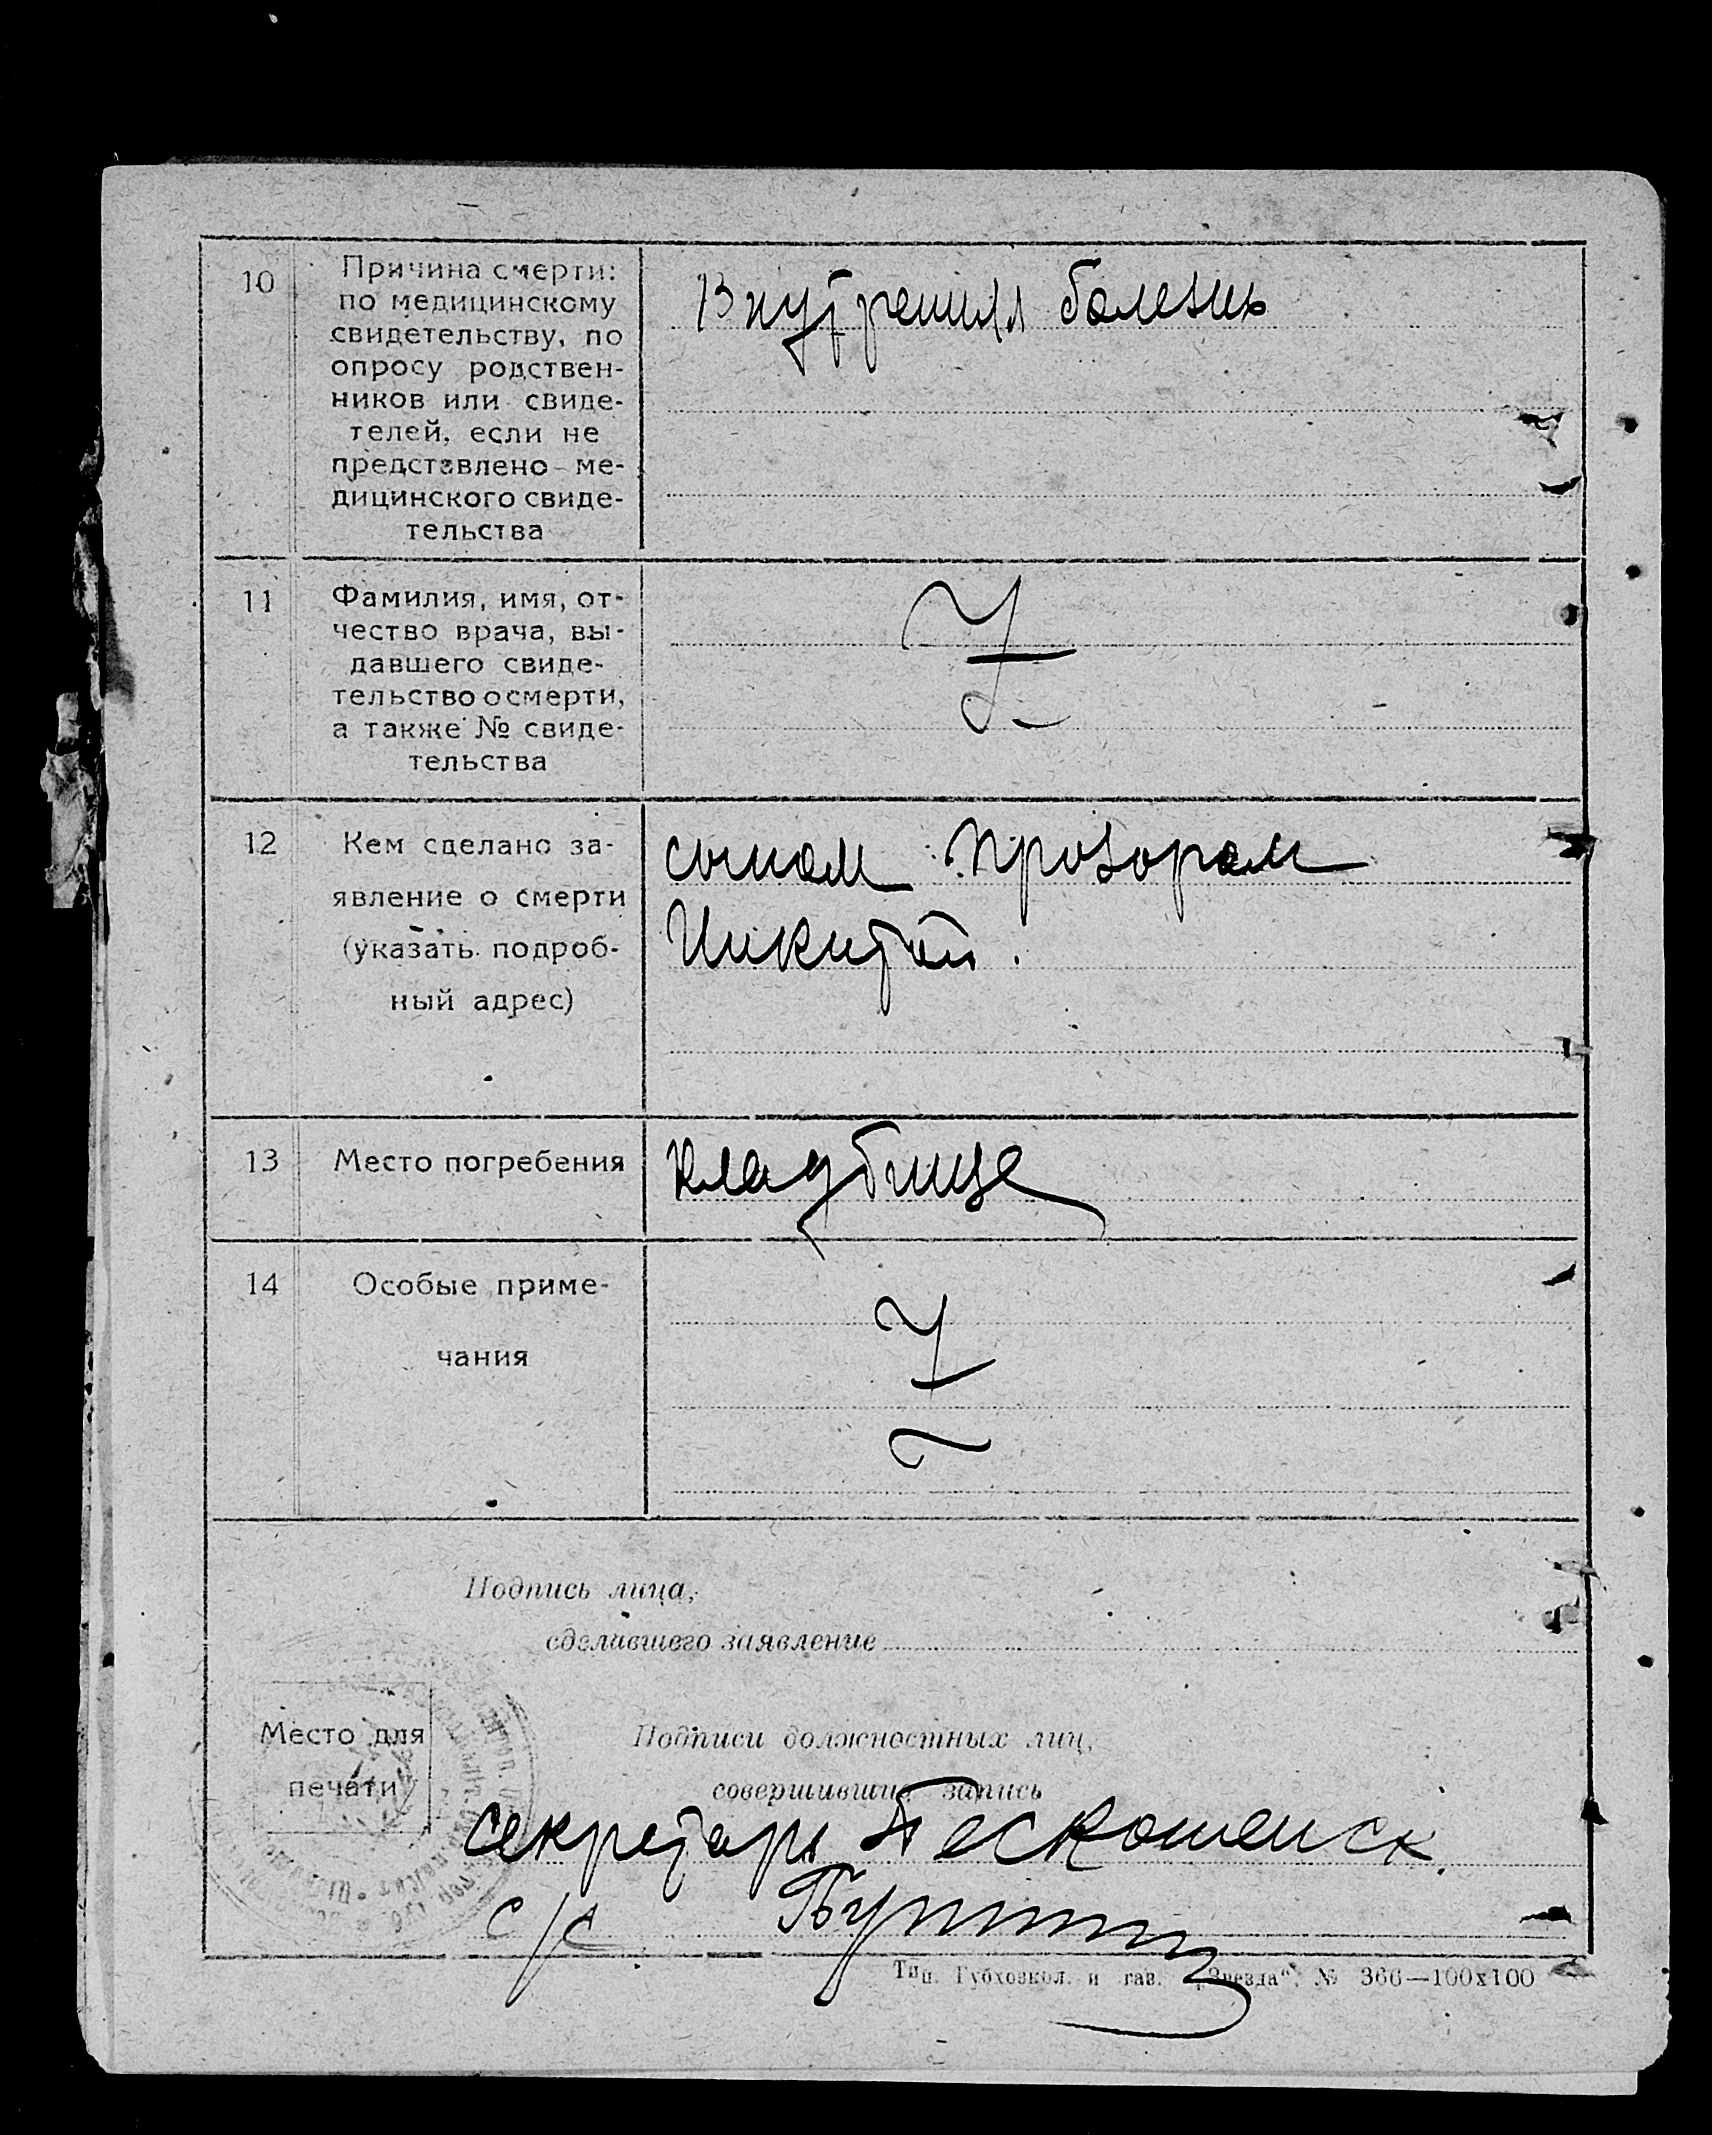 10 Причина смерти: Внутренняя болезнь
по медицинскому
свидетельству, по
опросу родствен-
ников или свиде-
телей, если не
представлено ме-
дицинского свиде-
тельства
11 Фамилия, имя, от-
чество врача, вы-
давшего свиде-
тельство о смерти,
а также № свиде-
тельства
12 Кем сделано за- сыном Прозорам
явление о смерти Никитой.
(указать подроб-
ный адрес)
13 Место погребения кладбище
14 Особые приме-
чания
Подпись лица,
сделавшего заявление
Место для
печати
Подписи должностных лиц,
совершивших запись
секретарь
с/с
Тип. Губхозкол. и газ. „Звезда", № 366—100х100